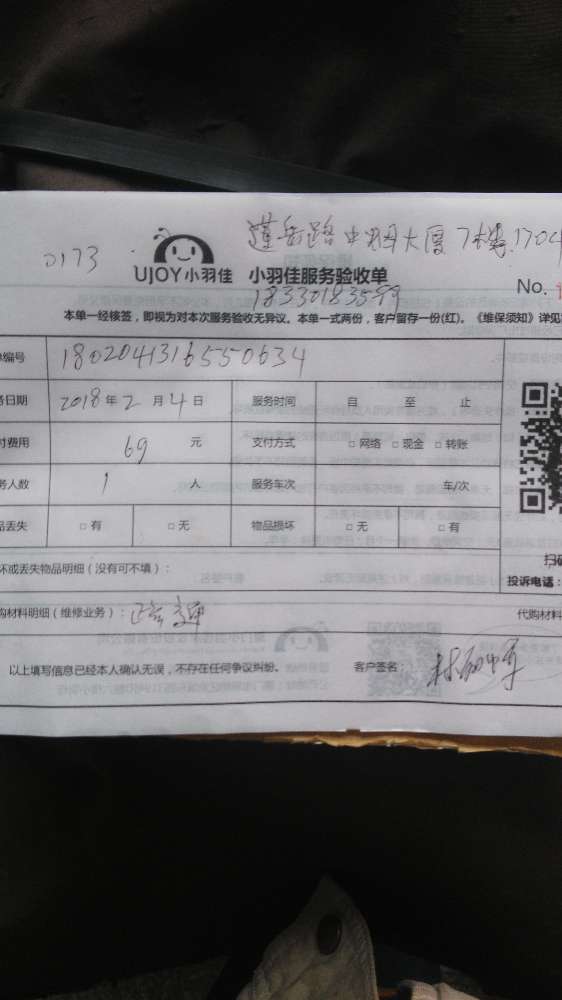 莲岳路 中烟大厦 7楼 1704
0173
UJOY小羽佳 小羽佳服务验收单
No.
本单一经核签,即视为对本次服务验收无异议。本单一式两份,客户留存一份(红)。《维保须知》详见
编号 1802041316550634
日期 2018年2月4日 服务时间 自 至 止
付费用 69 元 支付方式 □ 网络 □ 现金 □ 转账
务人数 1 人 服务车次 车/次
品丢失 □ 有 □ 无 物品损坏 □ 无 □ 有
坏或丢失物品明细(没有可不填): 扫码
投诉电话:
购材料明细(维修业务): 代购材料
以上填写信息已经本人确认无误,不存在任何争议纠纷。 客户签名: